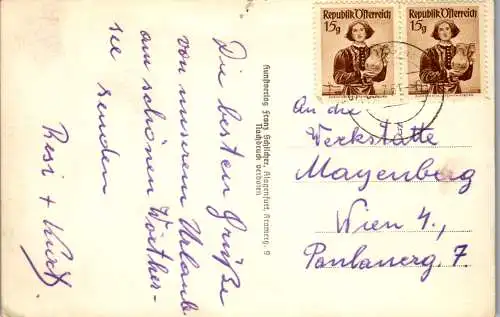 Die besten Grüße
von unserem Urlaub
am schönen Wörther-
see senden
Resi + Kurt
Kunstverlag Franz Schilcher, Klagenfurt, Kramerg. 9
Nachdruck verboten
Republik Österreich
15g
Republik Österreich
15g
An die
Werkstätte
Mayenberg
Wien 4.,
Panlanerg 7